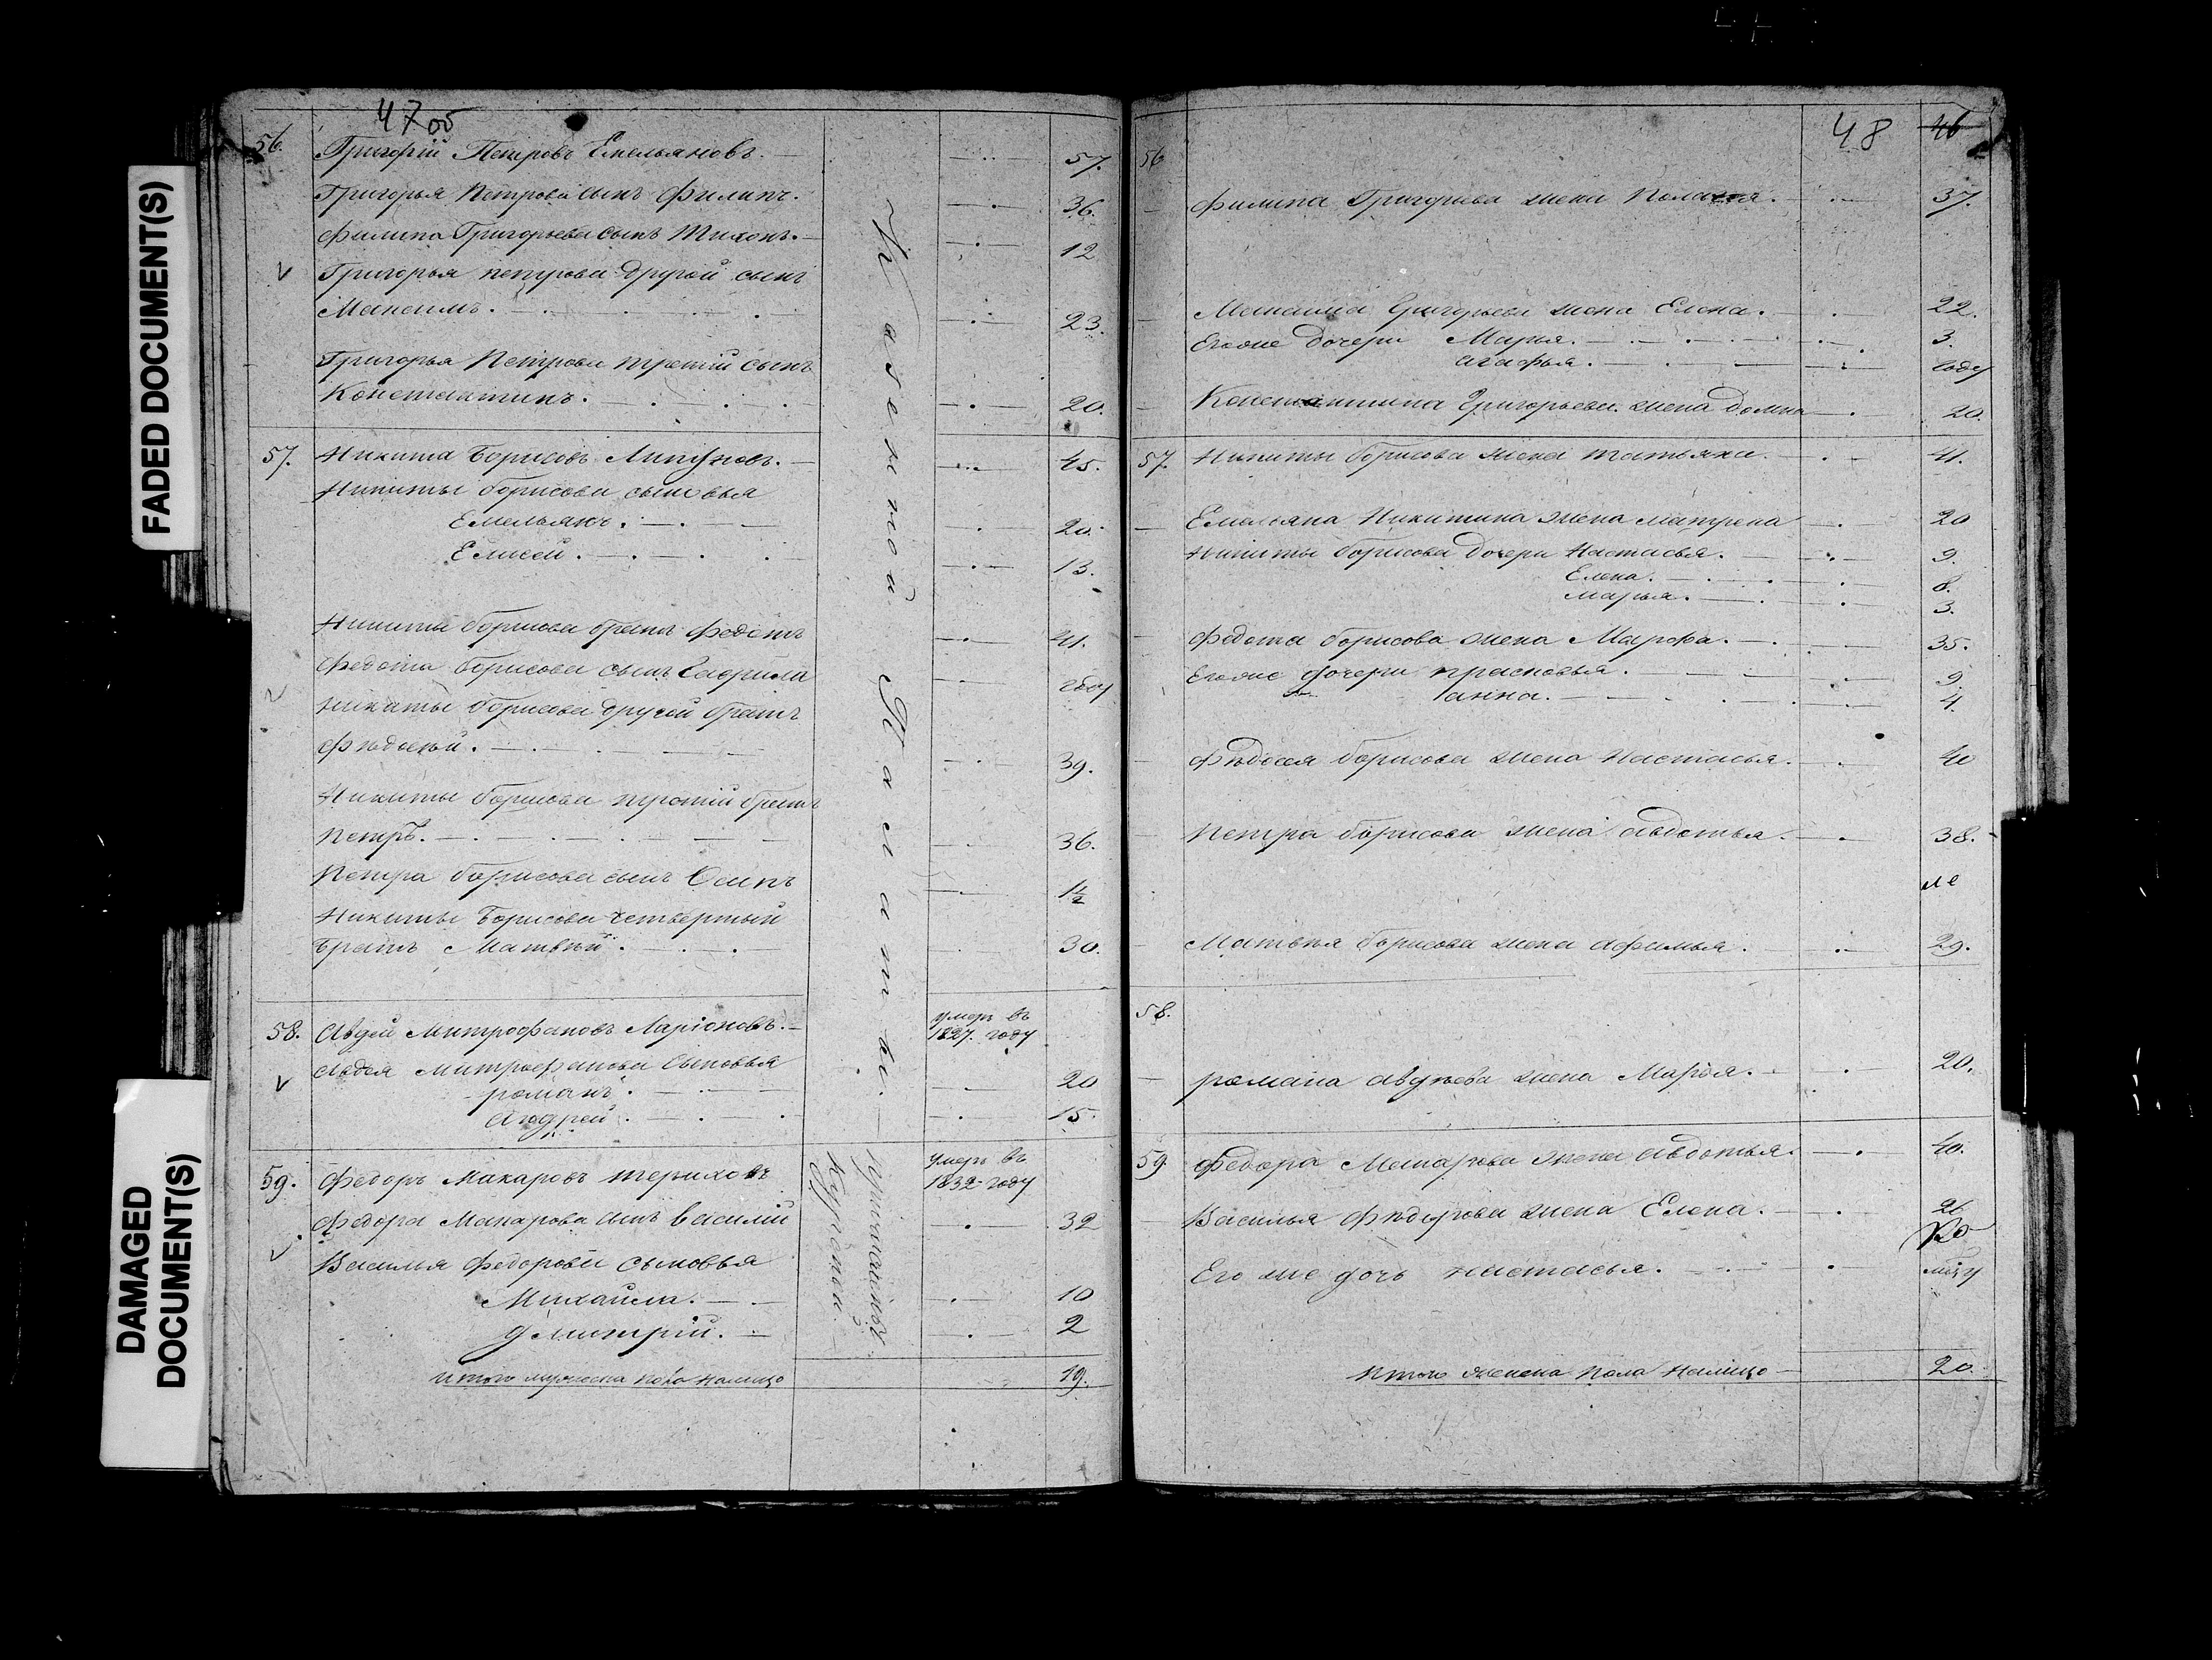 FADED DOCUMENT(S)
DAMAGED DOCUMENT(S)
47 об
56. Григорій Петровъ Емельяновъ. 57.
Григорья Петрова сынъ Филипъ. 36.
Филипа Григорьева сынъ Тихонъ. 12
Григорья петрова другой сынъ
Максимъ. 23.
Григорья Петрова третій сынъ
Константинъ. 20.
57. Никита Борисовъ 45.
Никиты борисова сыновья
Емельянъ. 20.
Елисей. 13.
Никиты борисова братъ Федотъ 41.
Федота борисова сынъ Гаврила году
Никиты борисова другой братъ
Фѣдосѣй. 39.
Никиты борисова третій братъ
Петръ. 36.
Петра борисова сынъ Осипъ 1½
Никиты Борисова четвертый
братъ Матвѣй. 30.
58. Авдей Митрофановъ Ларіоновъ. умеръ въ
1827. году
Авдея митрофанова сыновья
романъ. 20
Андрей. 15.
59. Федоръ Макаровъ териховъ умеръ въ
1832 году
Федора Макарова сынъ василій 32
Василья Федорова сыновья
Михайла. 10
дмитрій. 2
итого мужеска пола налицо 19.
48
46
56
Филипа Григорьева жена Пелагея. 37.
Максима Григорьева жена Елена. 22.
Егоже дочери Марья. 3.
агафья. году
Константина Григорьева жена домна 20.
57. Никиты борисова жена татьяна. 41.
Емельяна Никитина жена матрена 20
Никиты борисова дочери Настасья. 9.
Елена. 8.
марья. 3.
Федота борисова жена Марфа. 35.
Егоже дочери прасковья. 9
анна. 4.
Фѣдосея борисова жена Настасья. 40
Петра борисова жена авдотья. 38.
Матвѣя борисова жена афимья. 29.
58.
романа авдѣева жена Марья. 20.
59 Федора Макарова жена авдотья. 40.
Василья Фѣдорова жена Елена. 26
Его же дочь настасья.
Итого женска пола налицо 20.